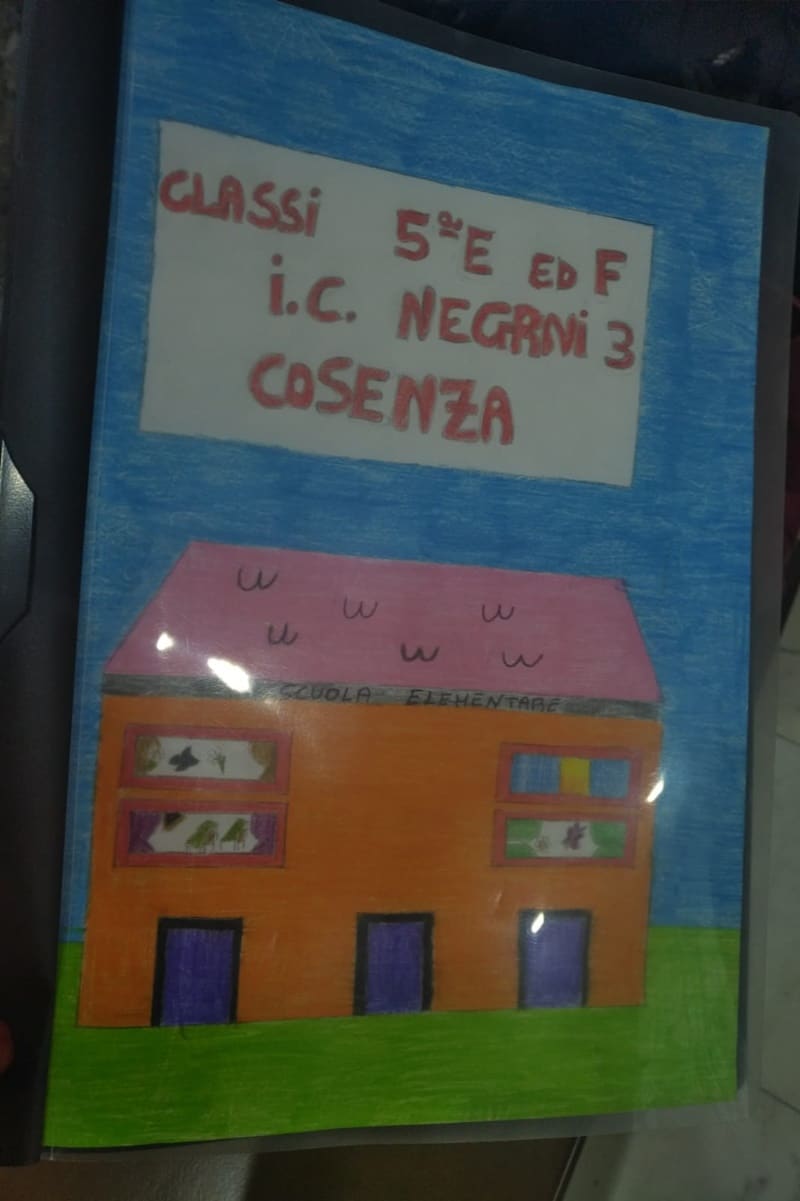 CLASSI 5ªE ED F
I.C. NEGRNI 3
COSENZA
SCUOLA ELEMENTARE